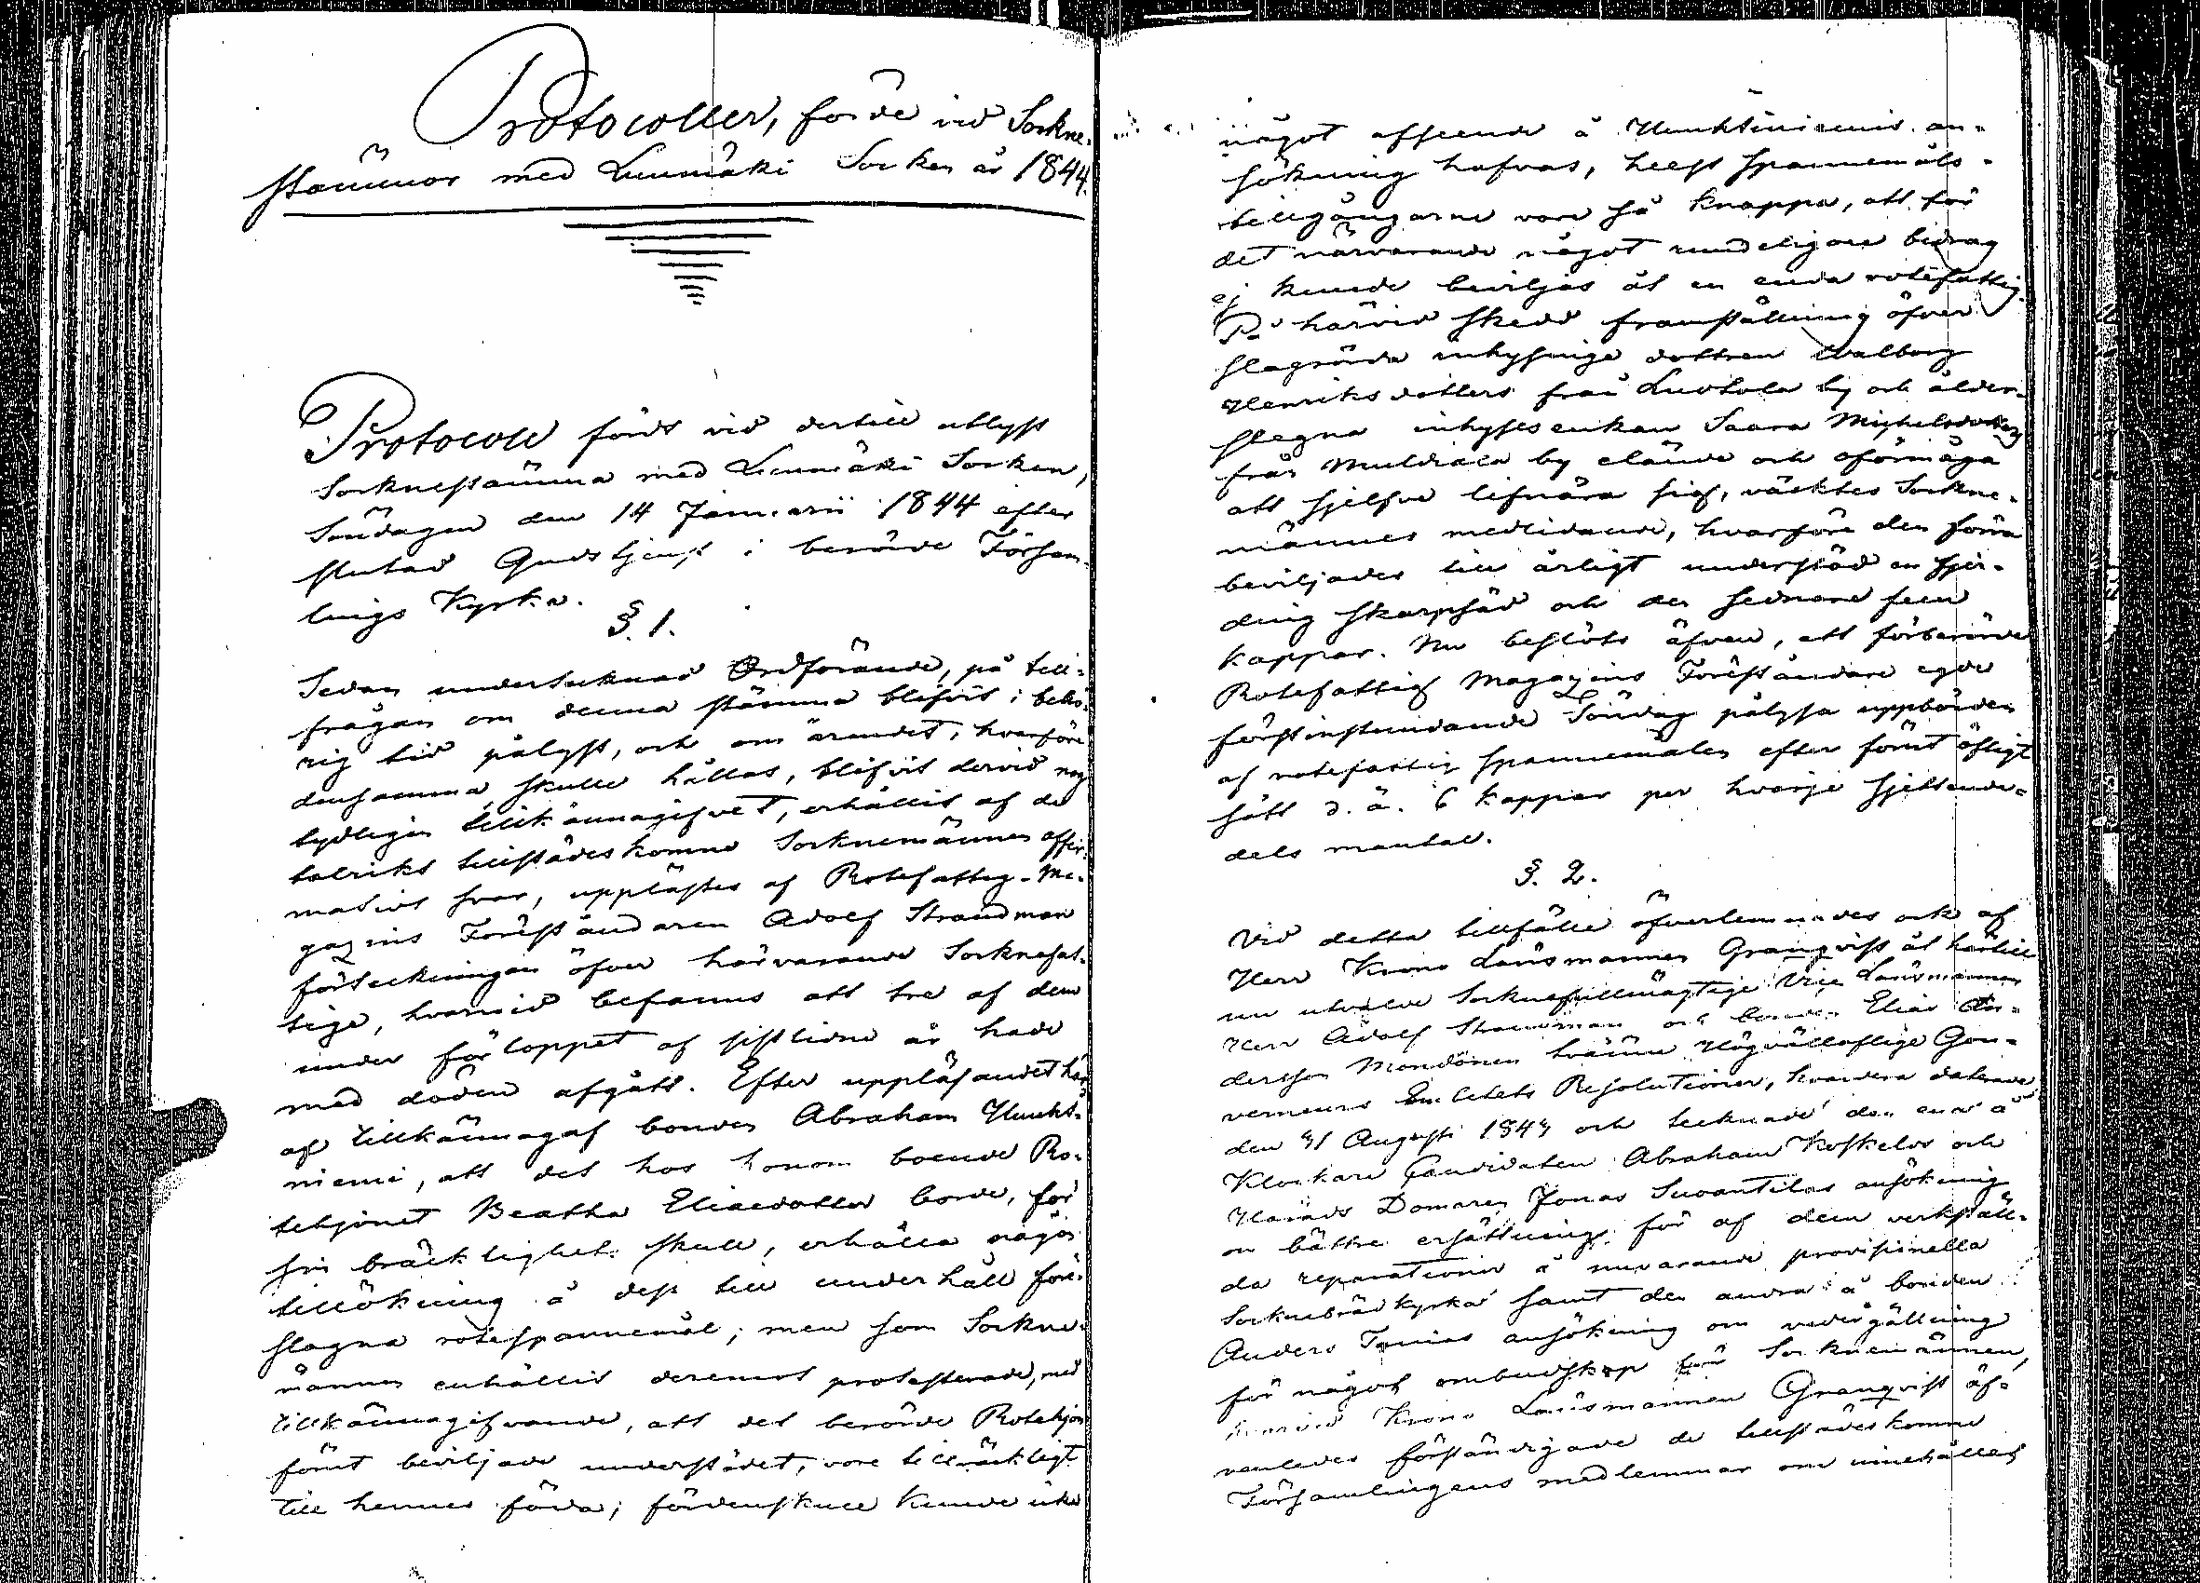 Protocoller, förde vid Sockne-
stämmor med Luumäki Socken år 1844.
Protocoll fördt vid dertill utlyst
Socknestämma med Luumäki Socken,
Söndagen den 14 Januarii 1844 efter
slutad Gudstjenst i berörde Försam-
lings Kyrka.
§. 1.
Sedan undertecknad Ordförande, på till-
frågan om denna stämma blifvit i behö-
rig tid pålyst, och om ärendet, hvarföre
densamma skulle hållas, blifvit dervid nog
tydligen tillkännagifvet, erhållit af de
talrikt tillstädeskomne Socknemännen affir-
mativt svar, upplästes af Rotefattig-Ma-
gazins Föreståndaren Adolf Strandman
förteckningen öfver härvarande Socknefat-
tige, hvarvid befanns att tre af dem
under förloppet af sistlidne år hade
med döden afgått. Efter uppläsandet här
af tillkännagaf bonden Abraham Hurkt-
niemi, att det hos honom boende Ro-
tehjonet Beatha Eliaedotter borde, för
sin bräcklighet skull, erhålla någon
tillökning å dess till underhåll före-
slagna rotespannemål; men som Sockne-
männen enhälligt deremot protesterade, med
tillkännagifvande, att det berörde Rotehjon
förut beviljade understödet, vore tillräckligt
till hennes föda; fördenskull kunde icke
något afseende å Hurktniemis an-
sökning hafvas, helst spannemåls-
tillgångarne vore så knappa, att för
det närvarande något rundeligare bidrag
ej kunde beviljas åt en enda rotefattig.
På härvid skedd framställning öfver
slagrörda inhysinge dottren Walborg
Henriksdotters från Luotola by och ålder-
stegna inhysesenkan Saara Michelsdotters
från Muldiala by elände och oförmåga
att sjelfve lifnära sig, väcktes Sockne-
männens medlidande, hvarföre den förra
beviljades till årligt understöd en fjer-
ding skarpsäd och den sednare fem
kappar. Nu beslöts äfven, att förberörde
Rotefattig Magazins Föreståndare egde
förstinstundande Söndag pålysa uppbörden
af rotefattig spannemålen efter förut öfligt
sätt d. ä. 6 kappar per hvarje sjettende-
dels mantal.
§. 2.
Vid detta tillfälle öfverlemnades ock af
Herr Krono Länsmannen Granqvist åt härtill
nu utvalde Socknefullmägtige Vice Länsmannen
Herr Adolf Strandman och bonden Elias An-
dersson Mondönen tvänne Högvälloflige Gou-
verneurs Embetets Resolutioner, hvardera daterade
den 31 Augusti 1843 och tecknade den ena å
Klockare Candidaten Abraham Koskelos och
Härads Domaren Jonas Suoanttilas ansökning
om bättre ersättning för af dem verkstäl-
da reparationer å nuvarande provisionella
Socknebrädkyrka samt den andra å bonden
Anders Tomias ansökning om vedergällning
för något ombudskap för Socknemännen,
hvarvid Krono Länsmannen Granqvist äf-
venledes förständigade de tillstädeskomne
Församlingens medlemmar om innehållet